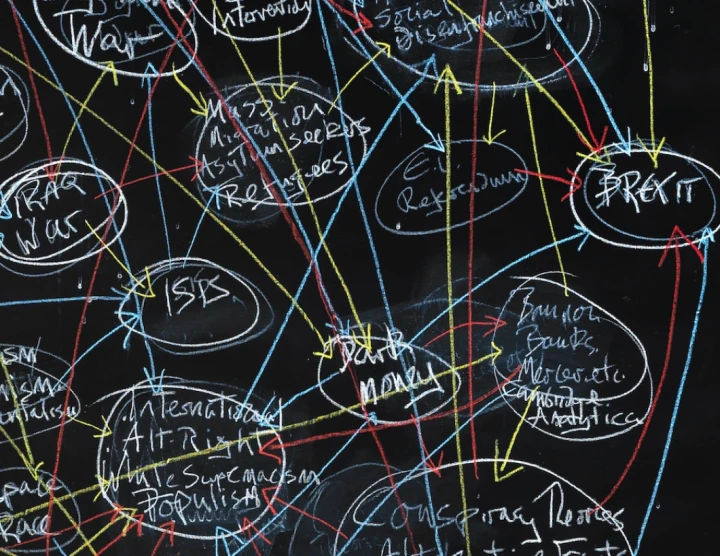 War
Intervention
Social
Disenfranchisement
Mass
Migration
Asylum Seekers
Refugees
E.U.
Referendum
BREXIT
IRAQ
War
ISIS
Dark
Money
Bannon
Banks,
Mercer, etc.
Cambridge
Analytica
International
Alt-Right
White Supremacism
Populism
Space
Race
Conspiracy Theories